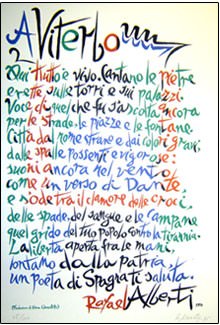 A Viterbo
Qui tutto è vivo. Cantano le pietre
erette sulle torri e sui palazzi.
Voce di quel che fu s'ascolta ancora
per le strade, le piazze e le fontane.
Città dal nome strano e dai colori gravi,
dalle spalle possenti e vigorose:
suoni ancora nel vento
come un verso di Dante
e s'ode tra il clamore delle croci,
delle spade, del sangue e le campane
quel grido del tuo popolo contro la tirannia.
La libertà aperta fra le mani,
lontano dalla patria,
un poeta di Spagna ti saluta.
Rafael Alberti